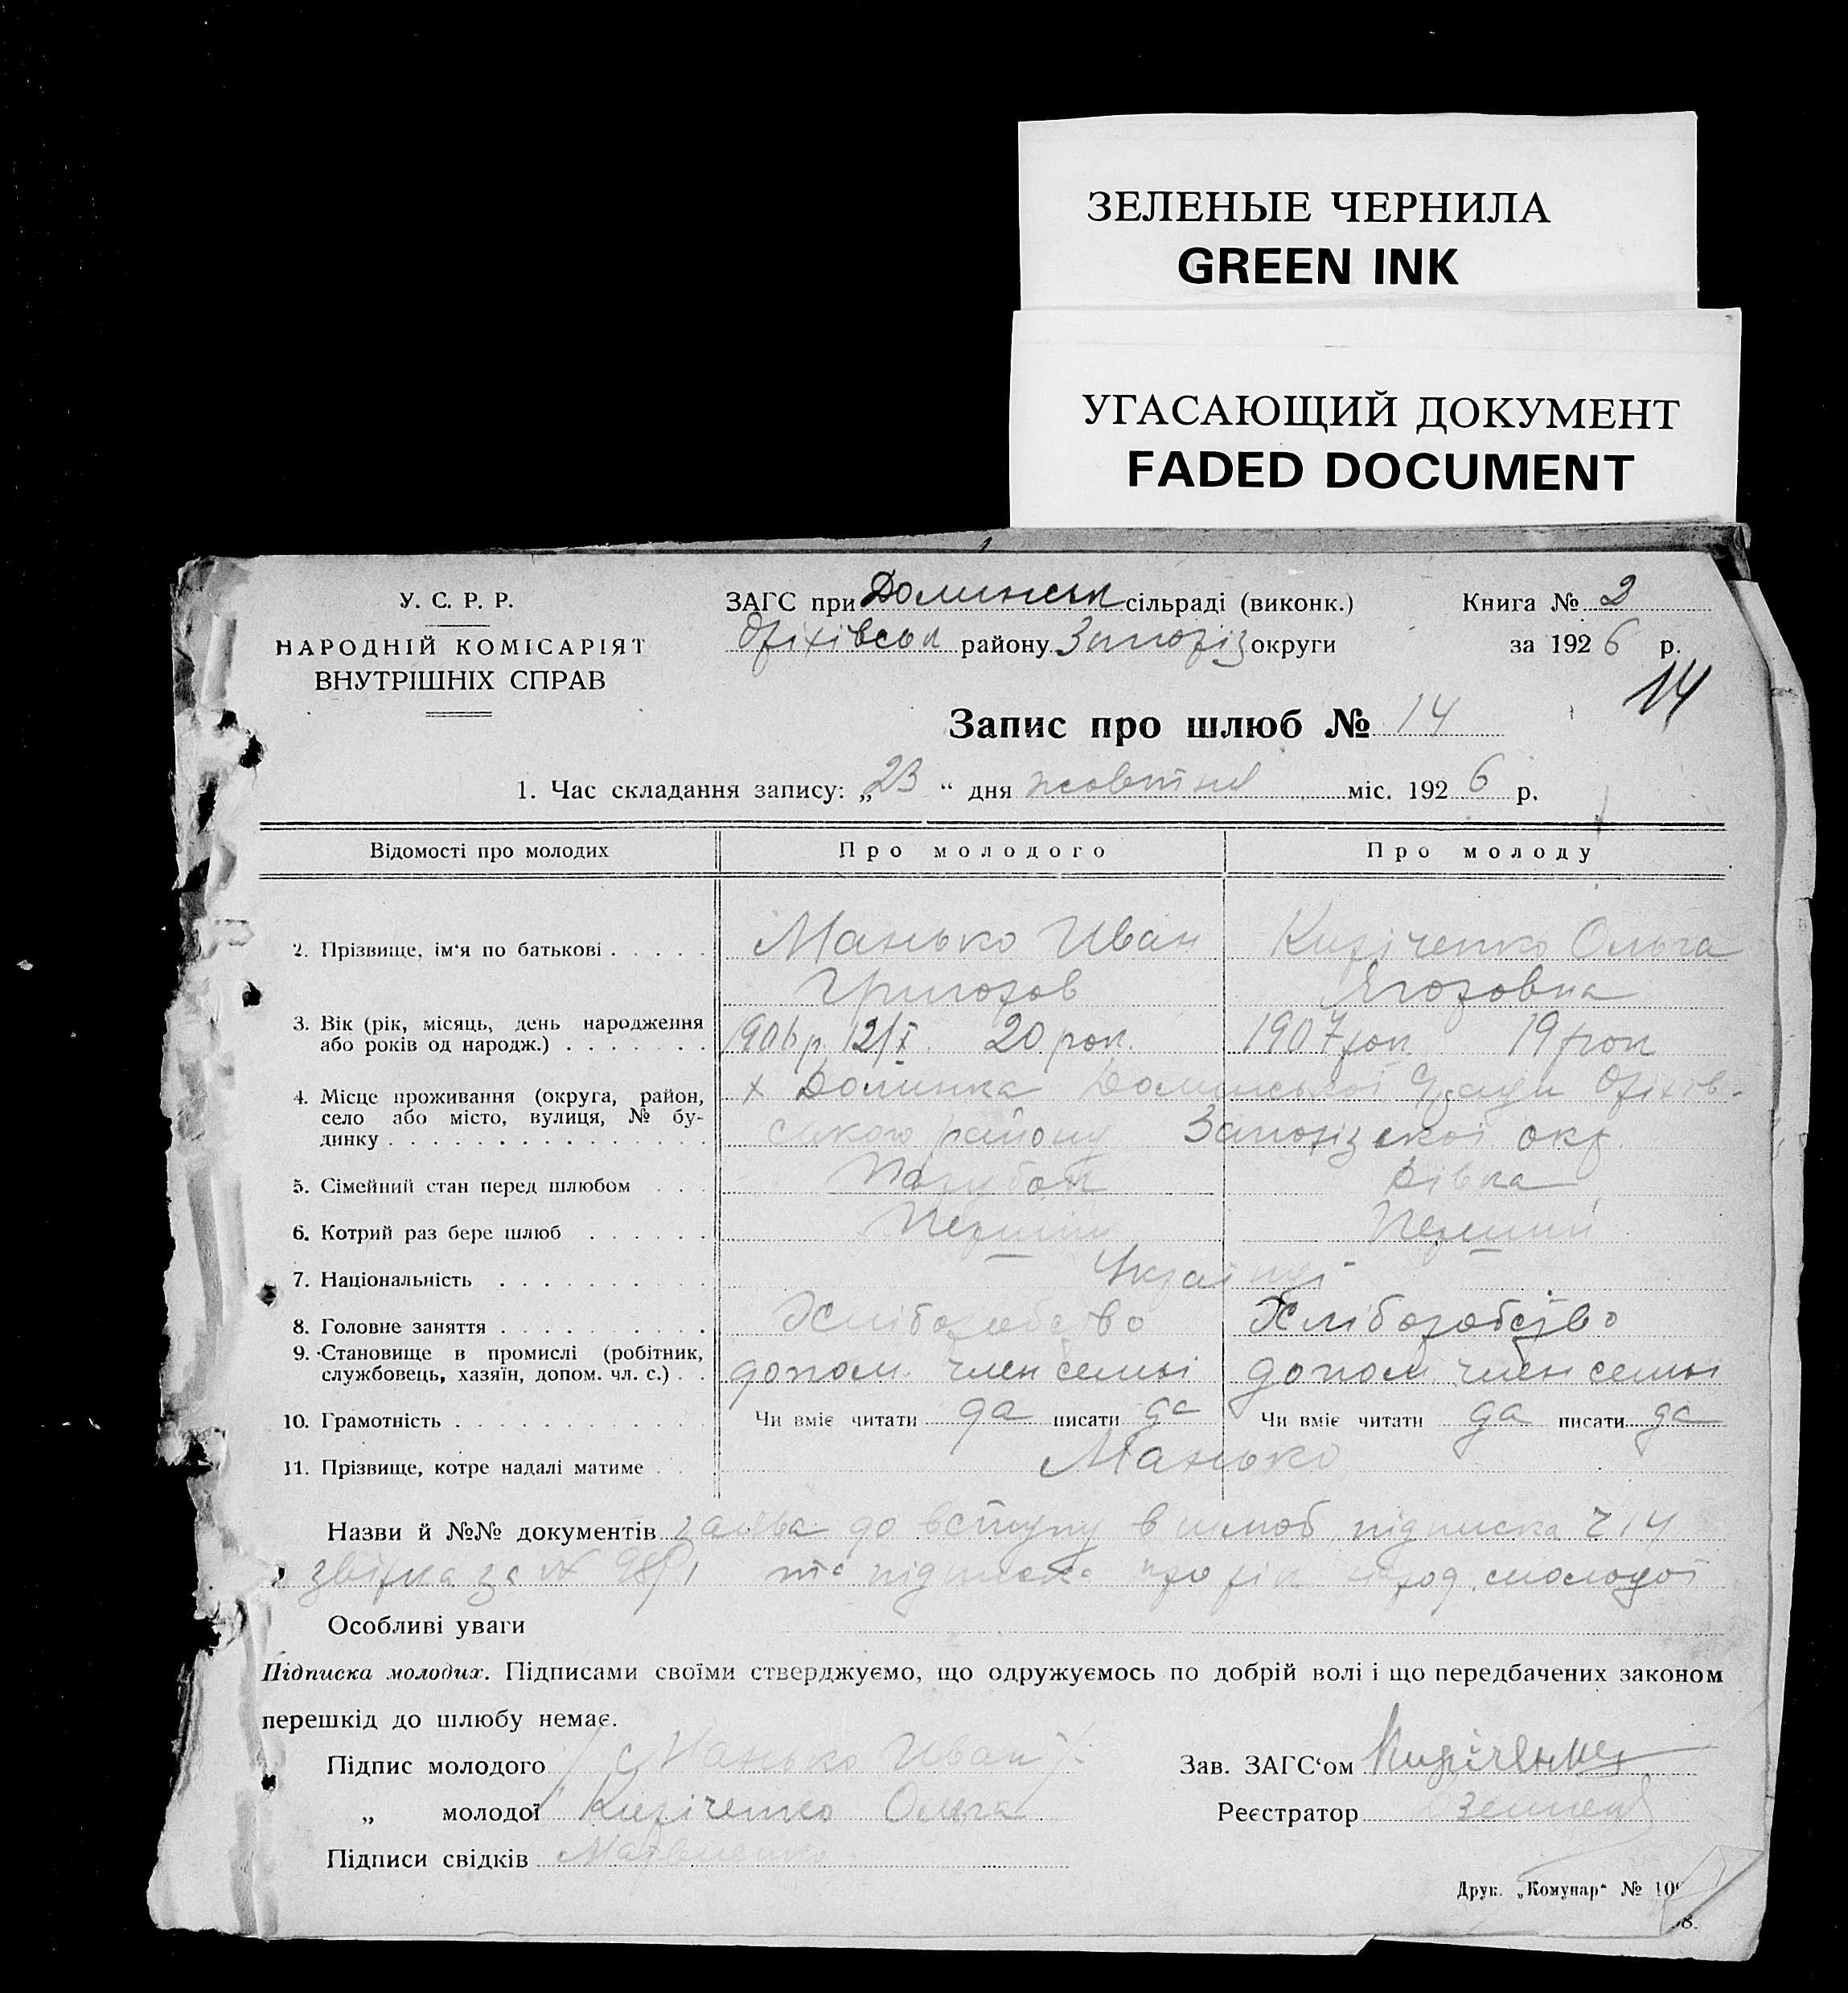 ЗЕЛЕНЫЕ ЧЕРНИЛА
GREEN INK
УГАСАЮЩИЙ ДОКУМЕНТ
FADED DOCUMENT
У. С. Р. Р.
НАРОДНІЙ КОМІСАРІЯТ
ВНУТРІШНІХ СПРАВ
ЗАГС при Долинськ сільраді (виконк.)
Оріхівськ району Запоріз округи
Книга № 2
за 1926 р.
14
Запис про шлюб № 14
1. Час складання запису: „23“ дня жовтня міс. 1926 р.
Відомості про молодих Про молодого Про молоду
2. Прізвище, ім'я по батькові Манько Иван Киріченко Ольга
Григоров Ягоровна
3. Вік (рік, місяць, день народження 1906 р. 12/X 20 рок. 1907 рок 19 рок
або років од народж.)
4. Місце проживання (округа, район, х Долинка Долинської С/ради Оріхів-
село або місто, вулиця, № бу-
динку ського району Запорізської окр.
5. Сімейний стан перед шлюбом Парубок Дівка
6. Котрий раз бере шлюб Перший Перший
7. Національність Українці
8. Головне заняття Хліборобство Хліборобство
9. Становище в промислі (робітник,
службовець, хазяїн, допом. чл. с.) допом. член семьі допом член семьі
10. Грамотність Чи вміє читати да писати да Чи вміє читати да писати да
11. Прізвище, котре надалі матиме Манько
Назви й №№ документів заява до вступу в шлюб, підписка ч 14
звірка за № та підписка про рік народ. молодої
Особливі уваги
Підписка молодих. Підписами своїми стверджуємо, що одружуємось по добрій волі і що передбачених законом
перешкід до шлюбу немає.
Підпис молодого Манько Иван
Зав. ЗАГС'ом Кириченко
„ молодої Киріченко Ольга
Реєстратор
Підписи свідків Матвиенко
Друк. „Комунар“ №